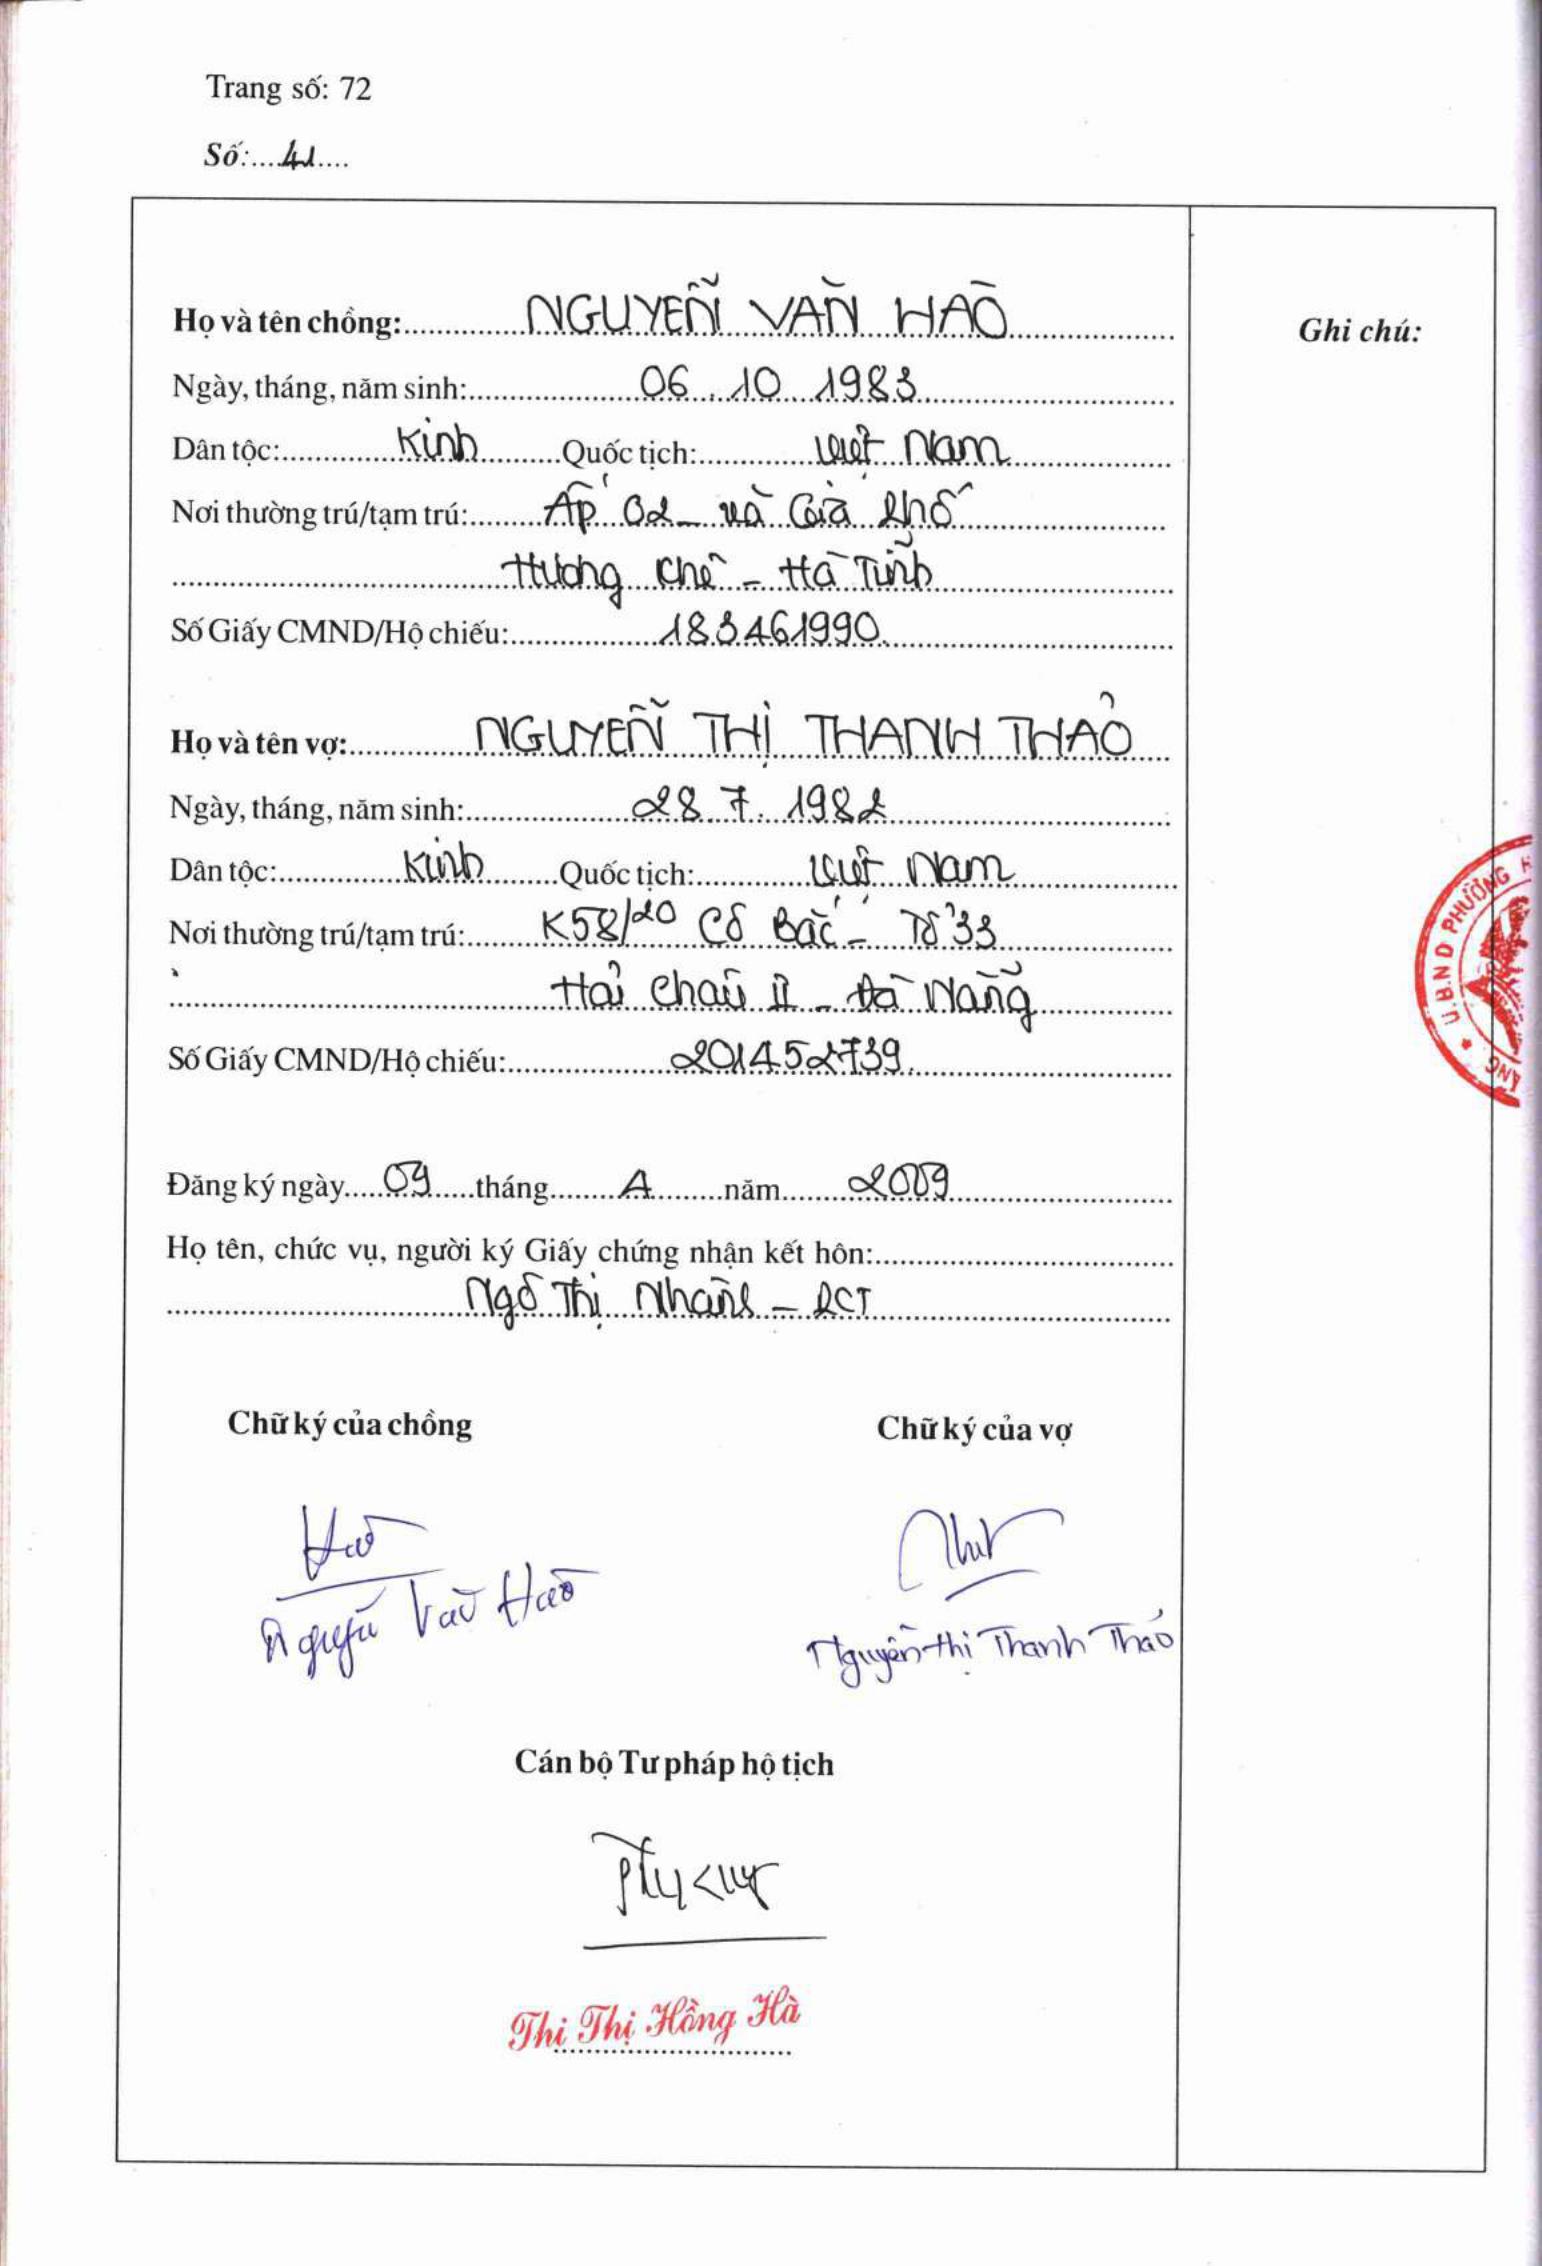 Trang số: 72
Số: 41
Họ và tên chồng: NGUYỄN VĂN HÀO
Ghi chú:
Ngày, tháng, năm sinh: 06.10.1983
Dân tộc: Kinh Quốc tịch: Việt Nam
Nơi thường trú/tạm trú: Ấp 02 - xã Gia Phố
Hương Khê - Hà Tĩnh
Số Giấy CMND/Hộ chiếu: 183461990
Họ và tên vợ: NGUYỄN THỊ THANH THẢO
Ngày, tháng, năm sinh: 28.7.1982
Dân tộc: Kinh Quốc tịch: Việt Nam
Nơi thường trú/tạm trú: K58/20 Cô Bắc - Tổ 33
Hải Châu II - Đà Nẵng
Số Giấy CMND/Hộ chiếu: 201452739
U.B.N.D PHƯỜNG
Đăng ký ngày 09 tháng năm 2009
Họ tên, chức vụ, người ký Giấy chứng nhận kết hôn:
Ngô Thị - PCT
Chữ ký của chồng Chữ ký của vợ
Nguyễn Văn Hào
Nguyễn Thị Thanh Thảo
Cán bộ Tư pháp hộ tịch
Thi Thị Hồng Hà